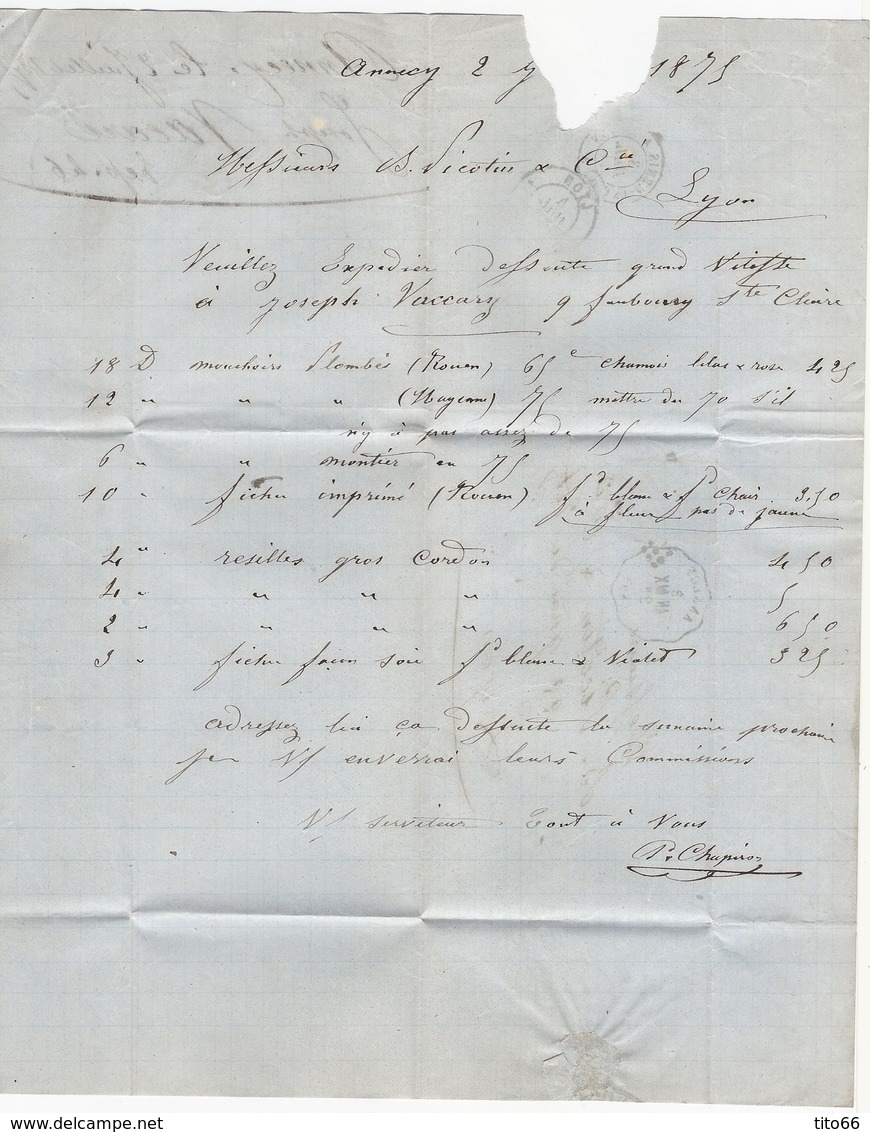 Annecy 2 J 1875
Messieurs B. Picotin & Cie
Lyon
Veuillez Expedier dessuite grand Vitesse
à Joseph Vaccary 9 faubourg Ste Claire
18 D mouchoirs Plombés (Rouen) 65 c chamois lilas & rose 4 25
12 " " " (Mayenne) 75 mettre du 70 s'il
n'y à pas assez de 75
6 " " montier en 75
10 " fichu imprimé (Rouen) fd blanc & fd Chair 3.50
à fleur pas de jaune
4 " resilles gros Cordon 4 50
4 " " " " 5
2 " " " " 6 50
3 " fichu façon soie fd blanc & Violet 3 25
adressez lui ça dessuite la semaine prochaine
je Vs enverrai leurs Commissions
Vs serviteur Tout à Vous
P. Chapiron
tito66